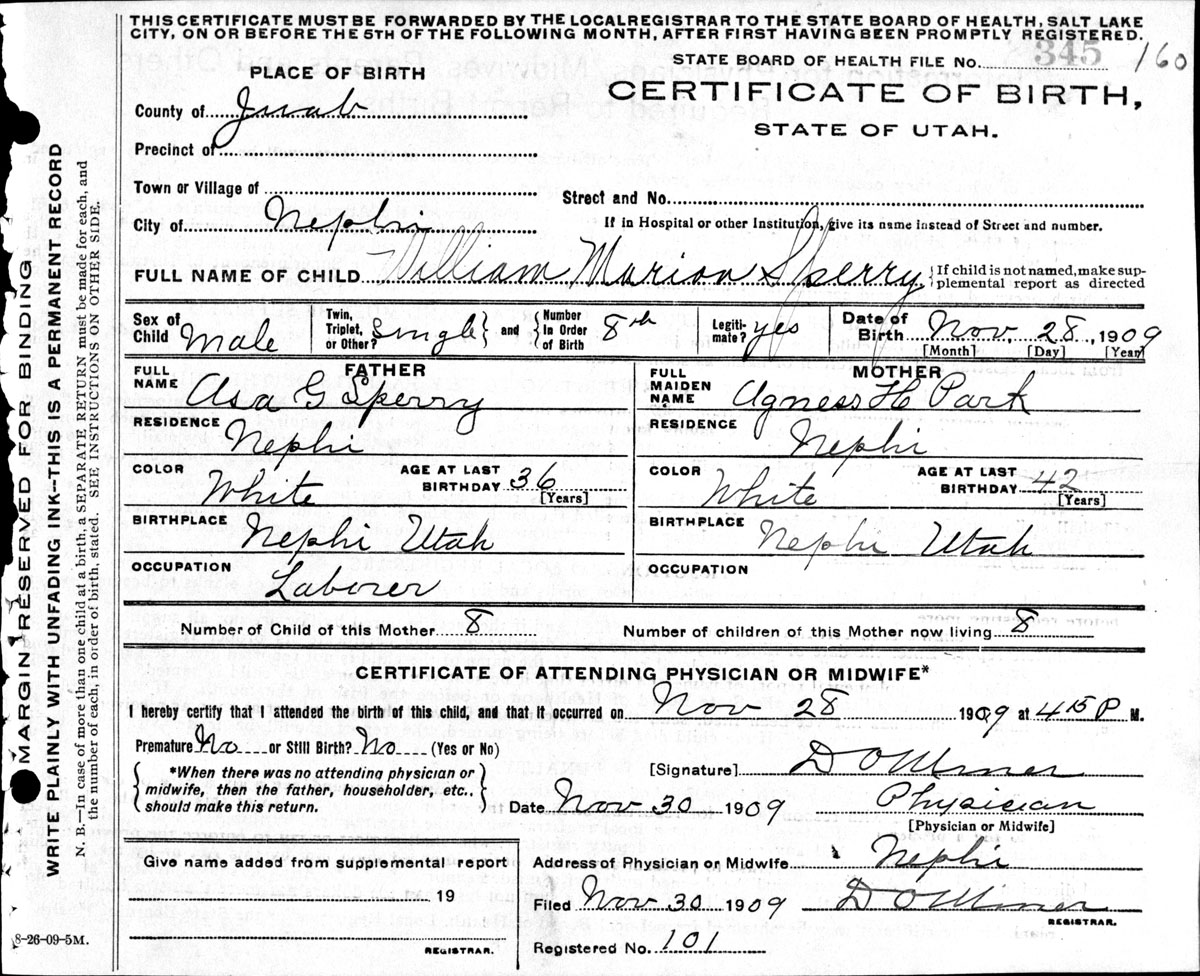 THIS CERTIFICATE MUST BE FORWARDED BY THE LOCALREGISTRAR TO THE STATE BOARD OF HEALTH, SALT LAKE
CITY, ON OR BEFORE THE 5TH OF THE FOLLOWING MONTH, AFTER FIRST HAVING BEEN PROMPTLY REGISTERED.
STATE BOARD OF HEALTH FILE NO. 345 160
PLACE OF BIRTH
CERTIFICATE OF BIRTH,
STATE OF UTAH.
County of Juab
Precinct of
Town or Village of
Street and No.
City of Nephi
If in Hospital or other Institution, give its name instead of Street and number.
FULL NAME OF CHILD William Marion Sperry { If child is not named, make sup-
plemental report as directed
Sex of Child Male Twin, Triplet, or Other? Single } and { Number In Order of Birth 8th Legiti-mate? yes Date of Birth Nov. 28, 1909
[Month] [Day] [Year]
FATHER MOTHER
FULL NAME Asa G Sperry FULL MAIDEN NAME Agness H Park
RESIDENCE Nephi RESIDENCE Nephi
COLOR White AGE AT LAST BIRTHDAY 36 [Years] COLOR White AGE AT LAST BIRTHDAY 42 [Years]
BIRTHPLACE Nephi Utah BIRTHPLACE Nephi Utah
OCCUPATION Laborer OCCUPATION
Number of Child of this Mother 8 Number of children of this Mother now living 8
CERTIFICATE OF ATTENDING PHYSICIAN OR MIDWIFE*
I hereby certify that I attended the birth of this child, and that it occurred on Nov 28 1909 at 4 15 P M.
Premature No or Still Birth? No (Yes or No)
{ *When there was no attending physician or
midwife, then the father, householder, etc.,
should make this return. }
[Signature] D O Miner
Date Nov 30 1909 Physician
[Physician or Midwife]
Give name added from supplemental report
19
REGISTRAR.
Address of Physician or Midwife Nephi
Filed Nov 30 1909 D O Miner
REGISTRAR.
Registered No. 101
8-26-09-5M.
MARGIN RESERVED FOR BINDING
WRITE PLAINLY WITH UNFADING INK—THIS IS A PERMANENT RECORD
N. B.—In case of more than one child at a birth, a SEPARATE RETURN must be made for each, and
the number of each, in order of birth, stated. SEE INSTRUCTIONS ON OTHER SIDE.